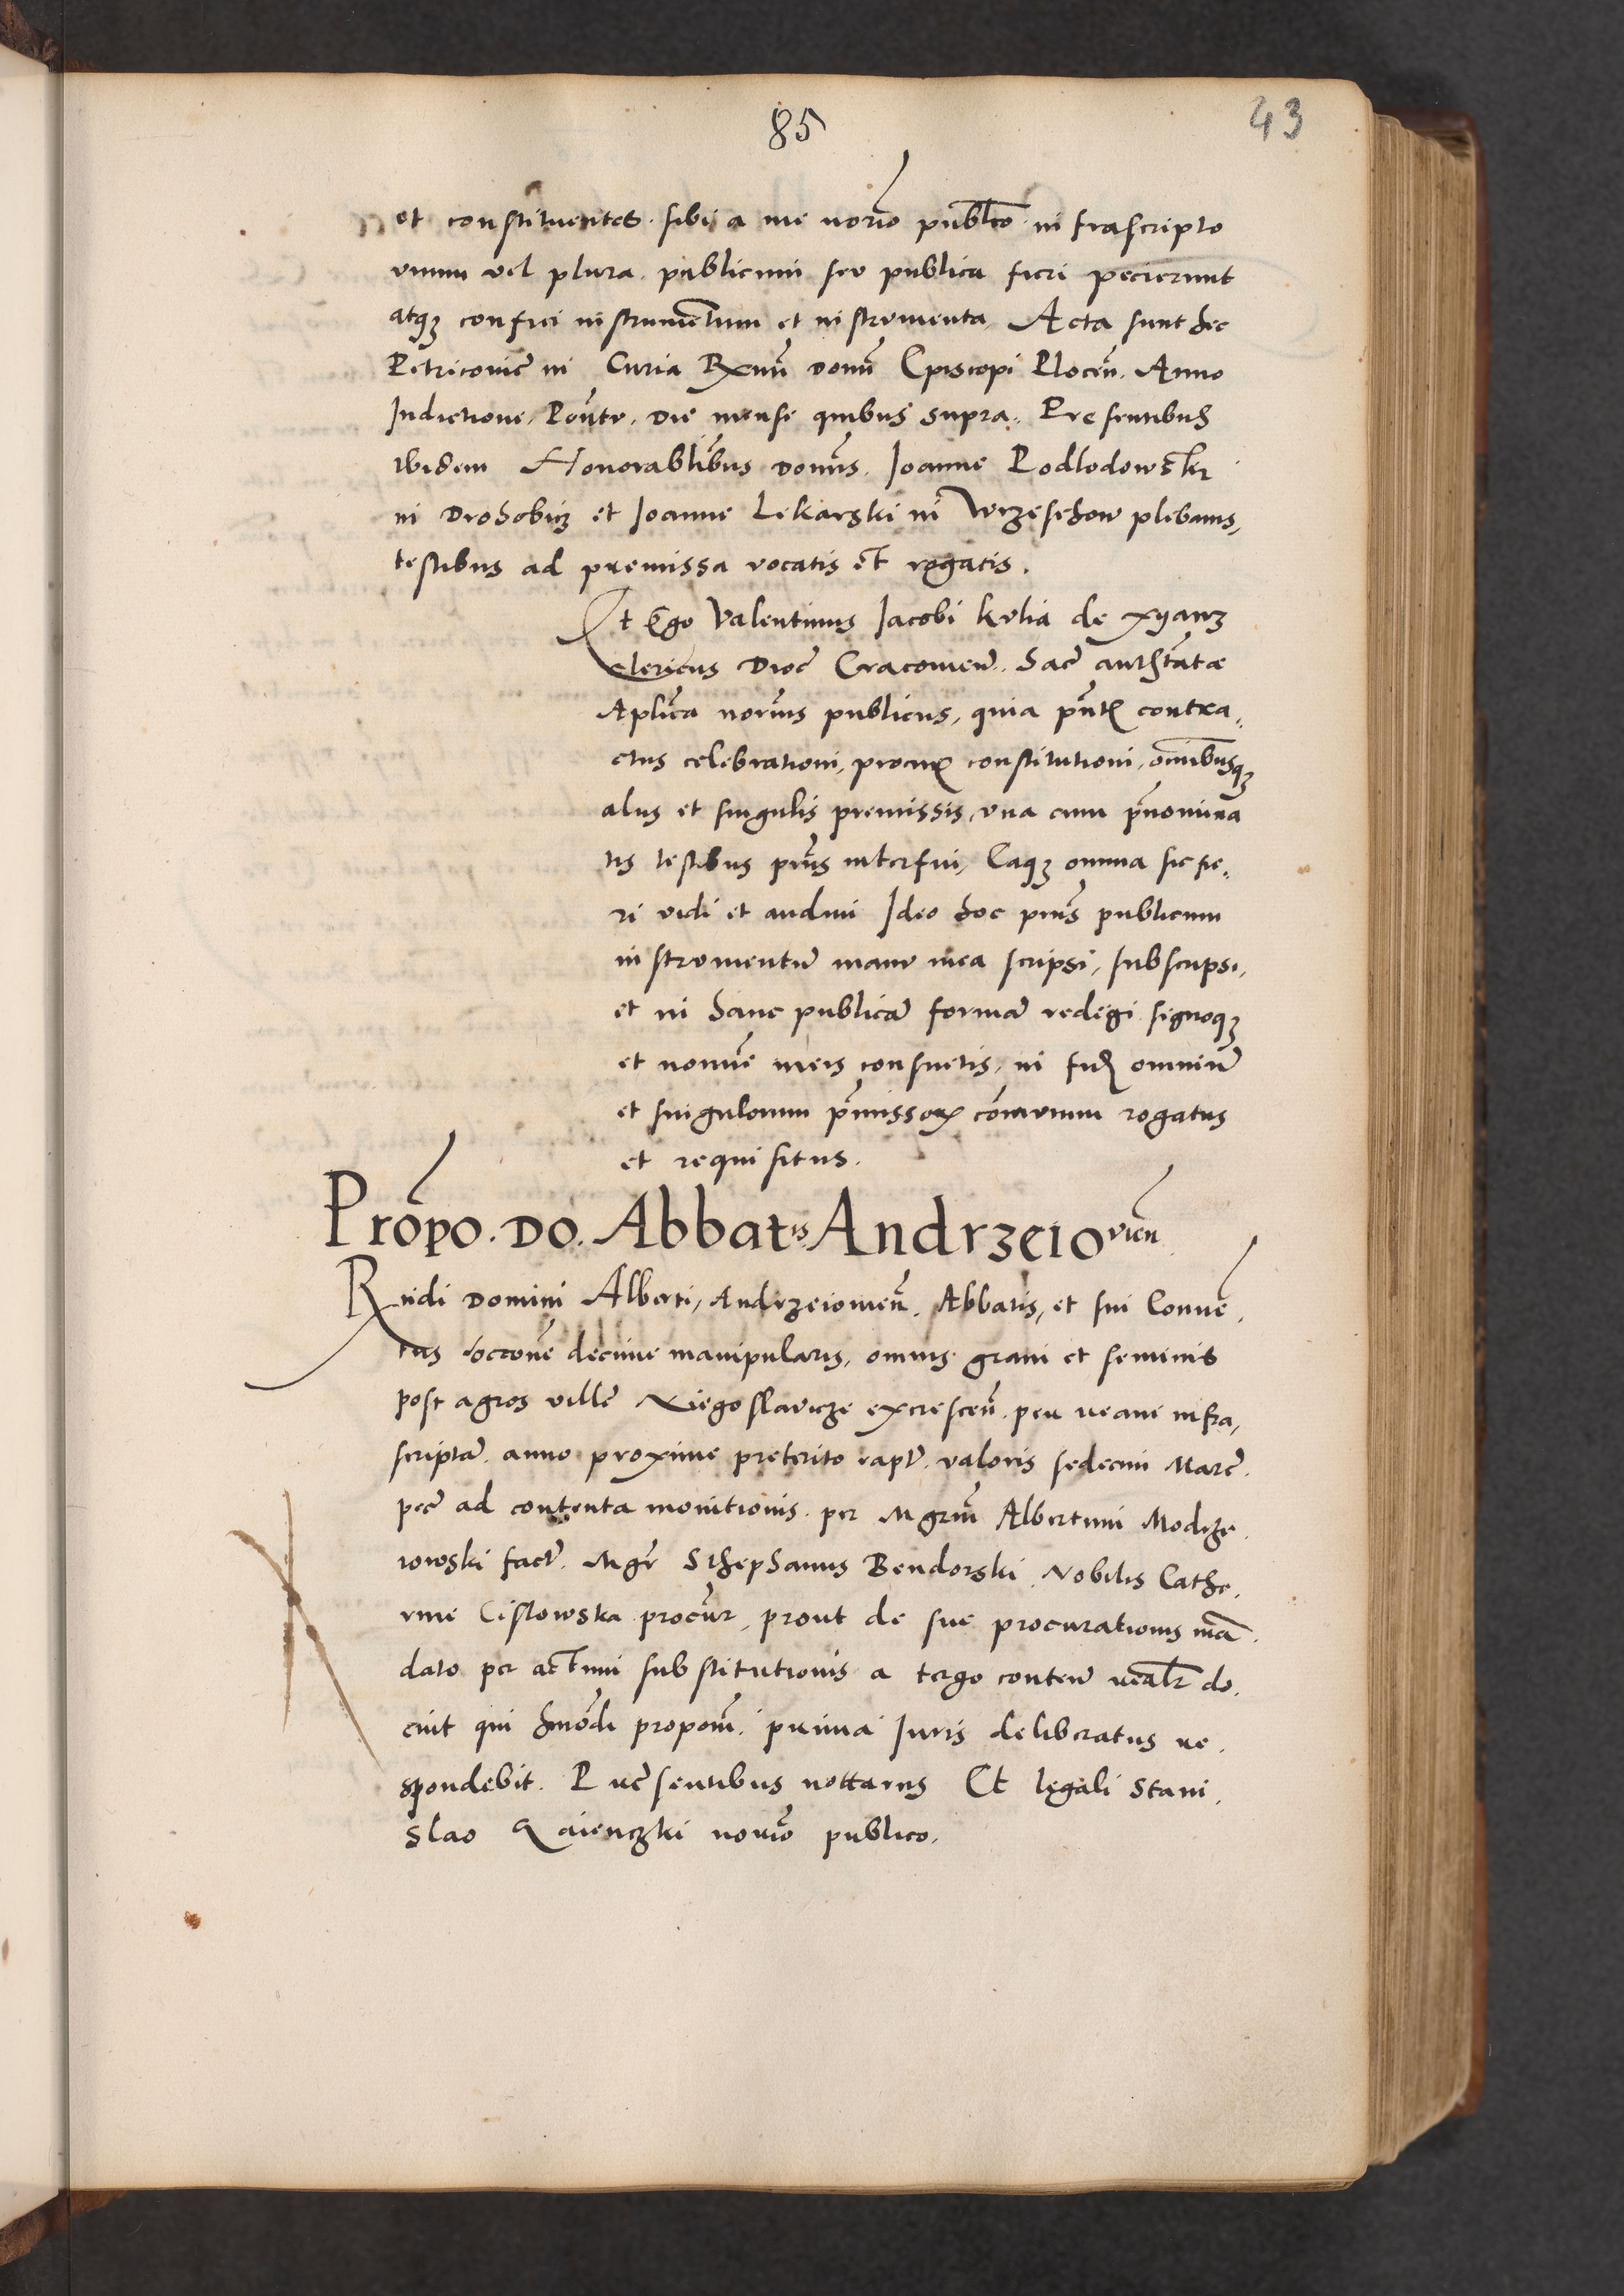 85
43
et constituentes. sibi a me nor̃io pub̃lco infrascripto
vnum vel plura. publicum seu publica fieri pecierunt
atqz confici instrumẽtum et instrumenta, Acta sunt hec
Petricouie in Curia Rx̃mi domi Episcopi Plocen̄. Anno
Indictione, Pon̄tu, Die mense quibus supra. Presentibus
ibidem Honorabl̃ibus domis. Joanne Podlodowski
in Drohobicz et Joanne Lekarski in Wrzeschow plebanis,
testibus ad premissa vocatis et rogatis.
Et Ego Valentinus Jacobi kulia de Xyanz
clericus Dioc̄ Cracouien̄. Sac̄ auth̄tate
Apl̄ica nor̄ius publicus, quia p̄nti contra,
ctus celebrationi, procur̄ constitutioni, om̄ibusqz
alijs et singulis premissis, vna cum p̄nomina
tis testibus p̄ns interfui, Eaqz omnia sic fie,
ri vidi et audiui Ideo hoc p̄ns publicum
instrumentū manu mea scripsi, subscripsi,
et in hanc publicā formā redegi signoqz
et nomīe meis consuetis, in fid̄ omniū
et singulorum p̄missor̄ com̄unium rogatus
et requisitus.
Prōpo. DO. Abbatis Andrzeiouien̄
Rndi Domini Alberti, Andrzeiouien̄. Abbatis, et sui Conuē,
tus decime manipularis, omnis grani et seminis
post agros ville Xiegoslavicze excrescen̄. per ream infra,
scriptā. anno proxime preterito rapt̄. valoris sedecim Marc̄.
pec̄ ad contenta monitionis. per Mgrm̄ Albertum Modrze,
iowski fact̄. Mgr̄ Sthephanus Bendorski. Nobilis Cathe,
rine Cislowska procur̄, prout de sue procurationis mā,
dato per actum substitutionis a tergo conten̄ realr̄ do,
cuit qui hmōdi propoñi. prima Iuris deliberatus re,
spondebit. Presentibus nottarijs Et legali Stani,
slao Gaienczki nor̄io publico.